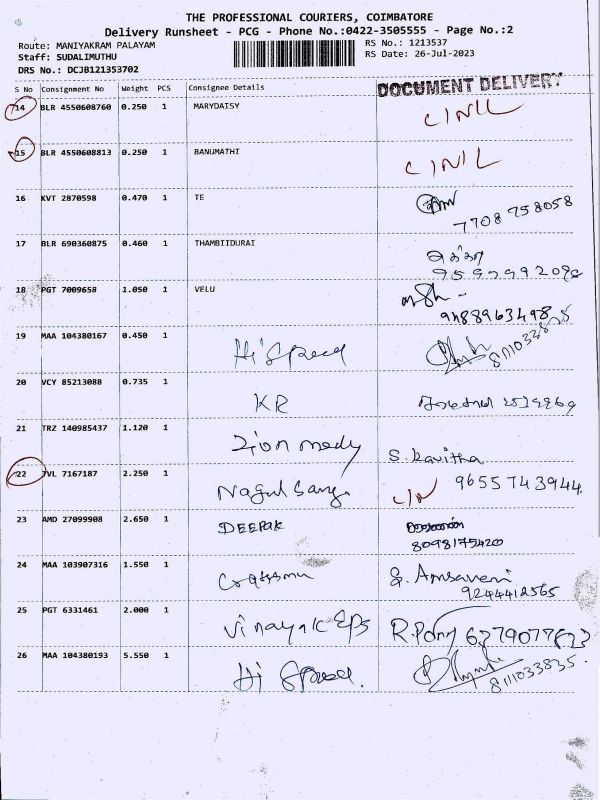 THE PROFESSIONAL COURIERS, COIMBATORE
Delivery Runsheet - PCG - Phone No.:0422-3505555 - Page No.:2
Route: MANIYAKRAM PALAYAM
RS No.: 1213537
Staff: SUDALIMUTHU
RS Date: 26-Jul-2023
DRS No.: DCJB121353702
S No Consignment No Weight PCS Consignee Details
DOCUMENT DELIVERY
14 BLR 4550608760 0.250 1 MARYDAISY
15 BLR 4550608813 0.250 1 BANUMATHI
16 KVT 2870598 0.470 1 TE
7708758058
17 BLR 690360875 0.460 1 THAMBIIDURAI
18 PGT 7009658 1.050 1 VELU
19 MAA 104380167 0.450 1 Hi Speed
8111033835
20 VCY 85213088 0.735 1 KR
21 TRZ 140985437 1.120 1 Zion medy S. Kavitha
22 JVL 7167187 2.250 1 9655743944
23 AMD 27099908 2.650 1 DEEPAK
8098175420
24 MAA 103907316 1.550 1
9244412565
25 PGT 6331461 2.000 1 Vinayak EPS
26 MAA 104380193 5.550 1 Hi Speed.
8111033835.